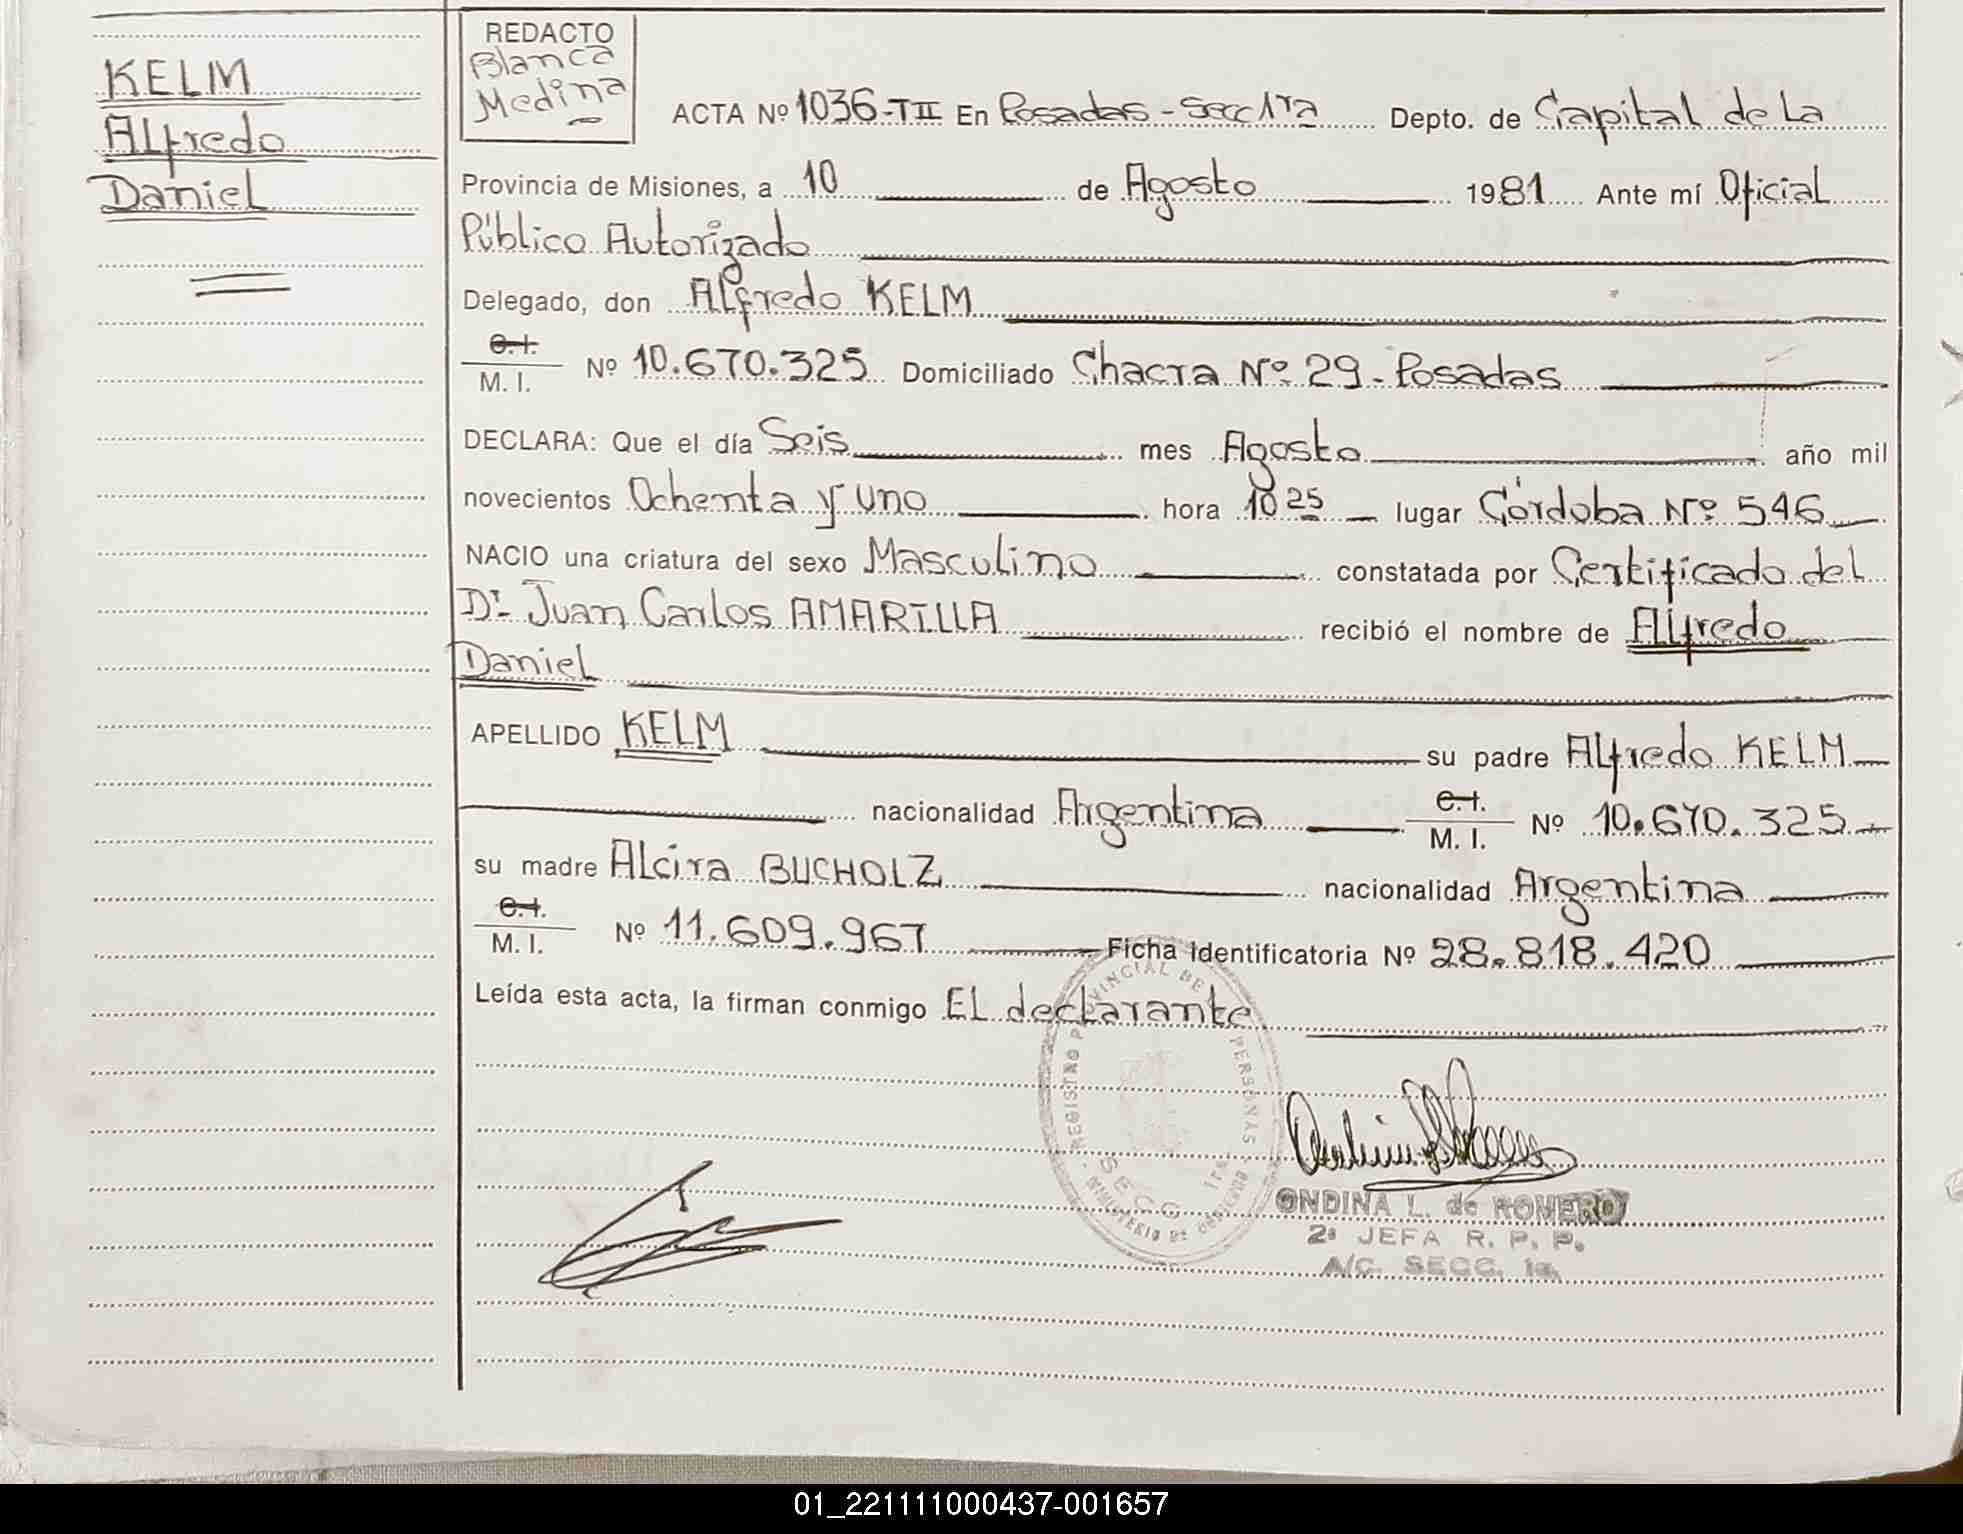 KELM
Alfredo
Daniel
REDACTO
Blanca
Medina
ACTA Nº 1036-TII En Posadas - Secc 1ra Depto. de Capital de La
Provincia de Misiones, a 10 de Agosto 1981 Ante mí Oficial
Público Autorizado
Delegado, don Alfredo KELM
C.I.
M. I. Nº 10.670.325 Domiciliado Chacra Nº 29 - Posadas
DECLARA: Que el día Seis mes Agosto año mil
novecientos Ochenta y uno hora 10 25 lugar Córdoba Nº 546
NACIO una criatura del sexo Masculino constatada por Certificado del
Dr. Juan Carlos AMARILLA recibió el nombre de Alfredo
Daniel
APELLIDO KELM su padre Alfredo KELM
nacionalidad Argentina C.I. M. I. Nº 10.670.325
su madre Alcira BUCHOLZ nacionalidad Argentina
C.I.
M. I. Nº 11.609.967 Ficha Identificatoria Nº 28.818.420
Leída esta acta, la firman conmigo EL declarante
REGISTRO PROVINCIAL DE PERSONAS
SECC. 1ra.
MINISTERIO DE GOBIERNO
ONDINA L. de ROMERO
2ª JEFA R. P. P.
A/C. SECC. 1a.
01_221111000437-001657